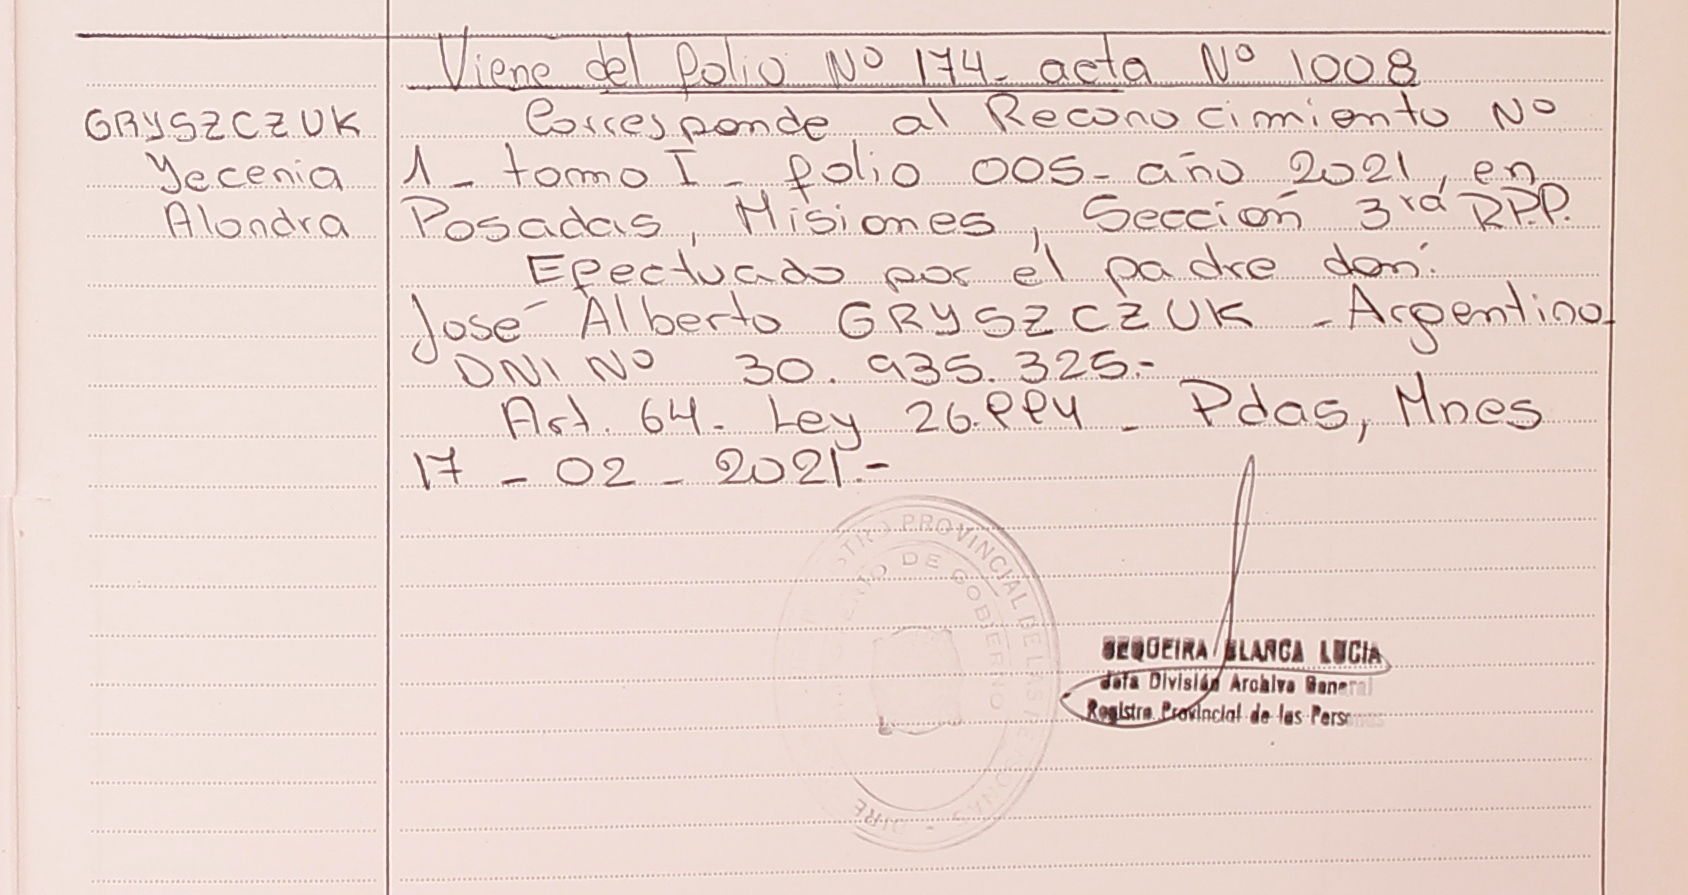 Viene del folio Nº 174_ acta Nº 1008
GRYSZCZUK
Yecenia
Alondra
Corresponde al Reconocimiento Nº
1_ tomo I_ folio 005_ año 2021, en
Posadas, Misiones, Sección 3rd R.P.P.
Efectuado por el padre don:
José Alberto GRYSZCZUK _ Argentino_
DNI Nº 30.935.325.-
Art. 64. Ley 26.994 _ Pdas, Mnes
17 _ 02 _ 2021.-
PROVINCIAL DE LAS PERSONAS
DE GOBIERNO
SEQUEIRA BLANCA LUCIA
Jefa División Archivo General
Registro Provincial de las Pers